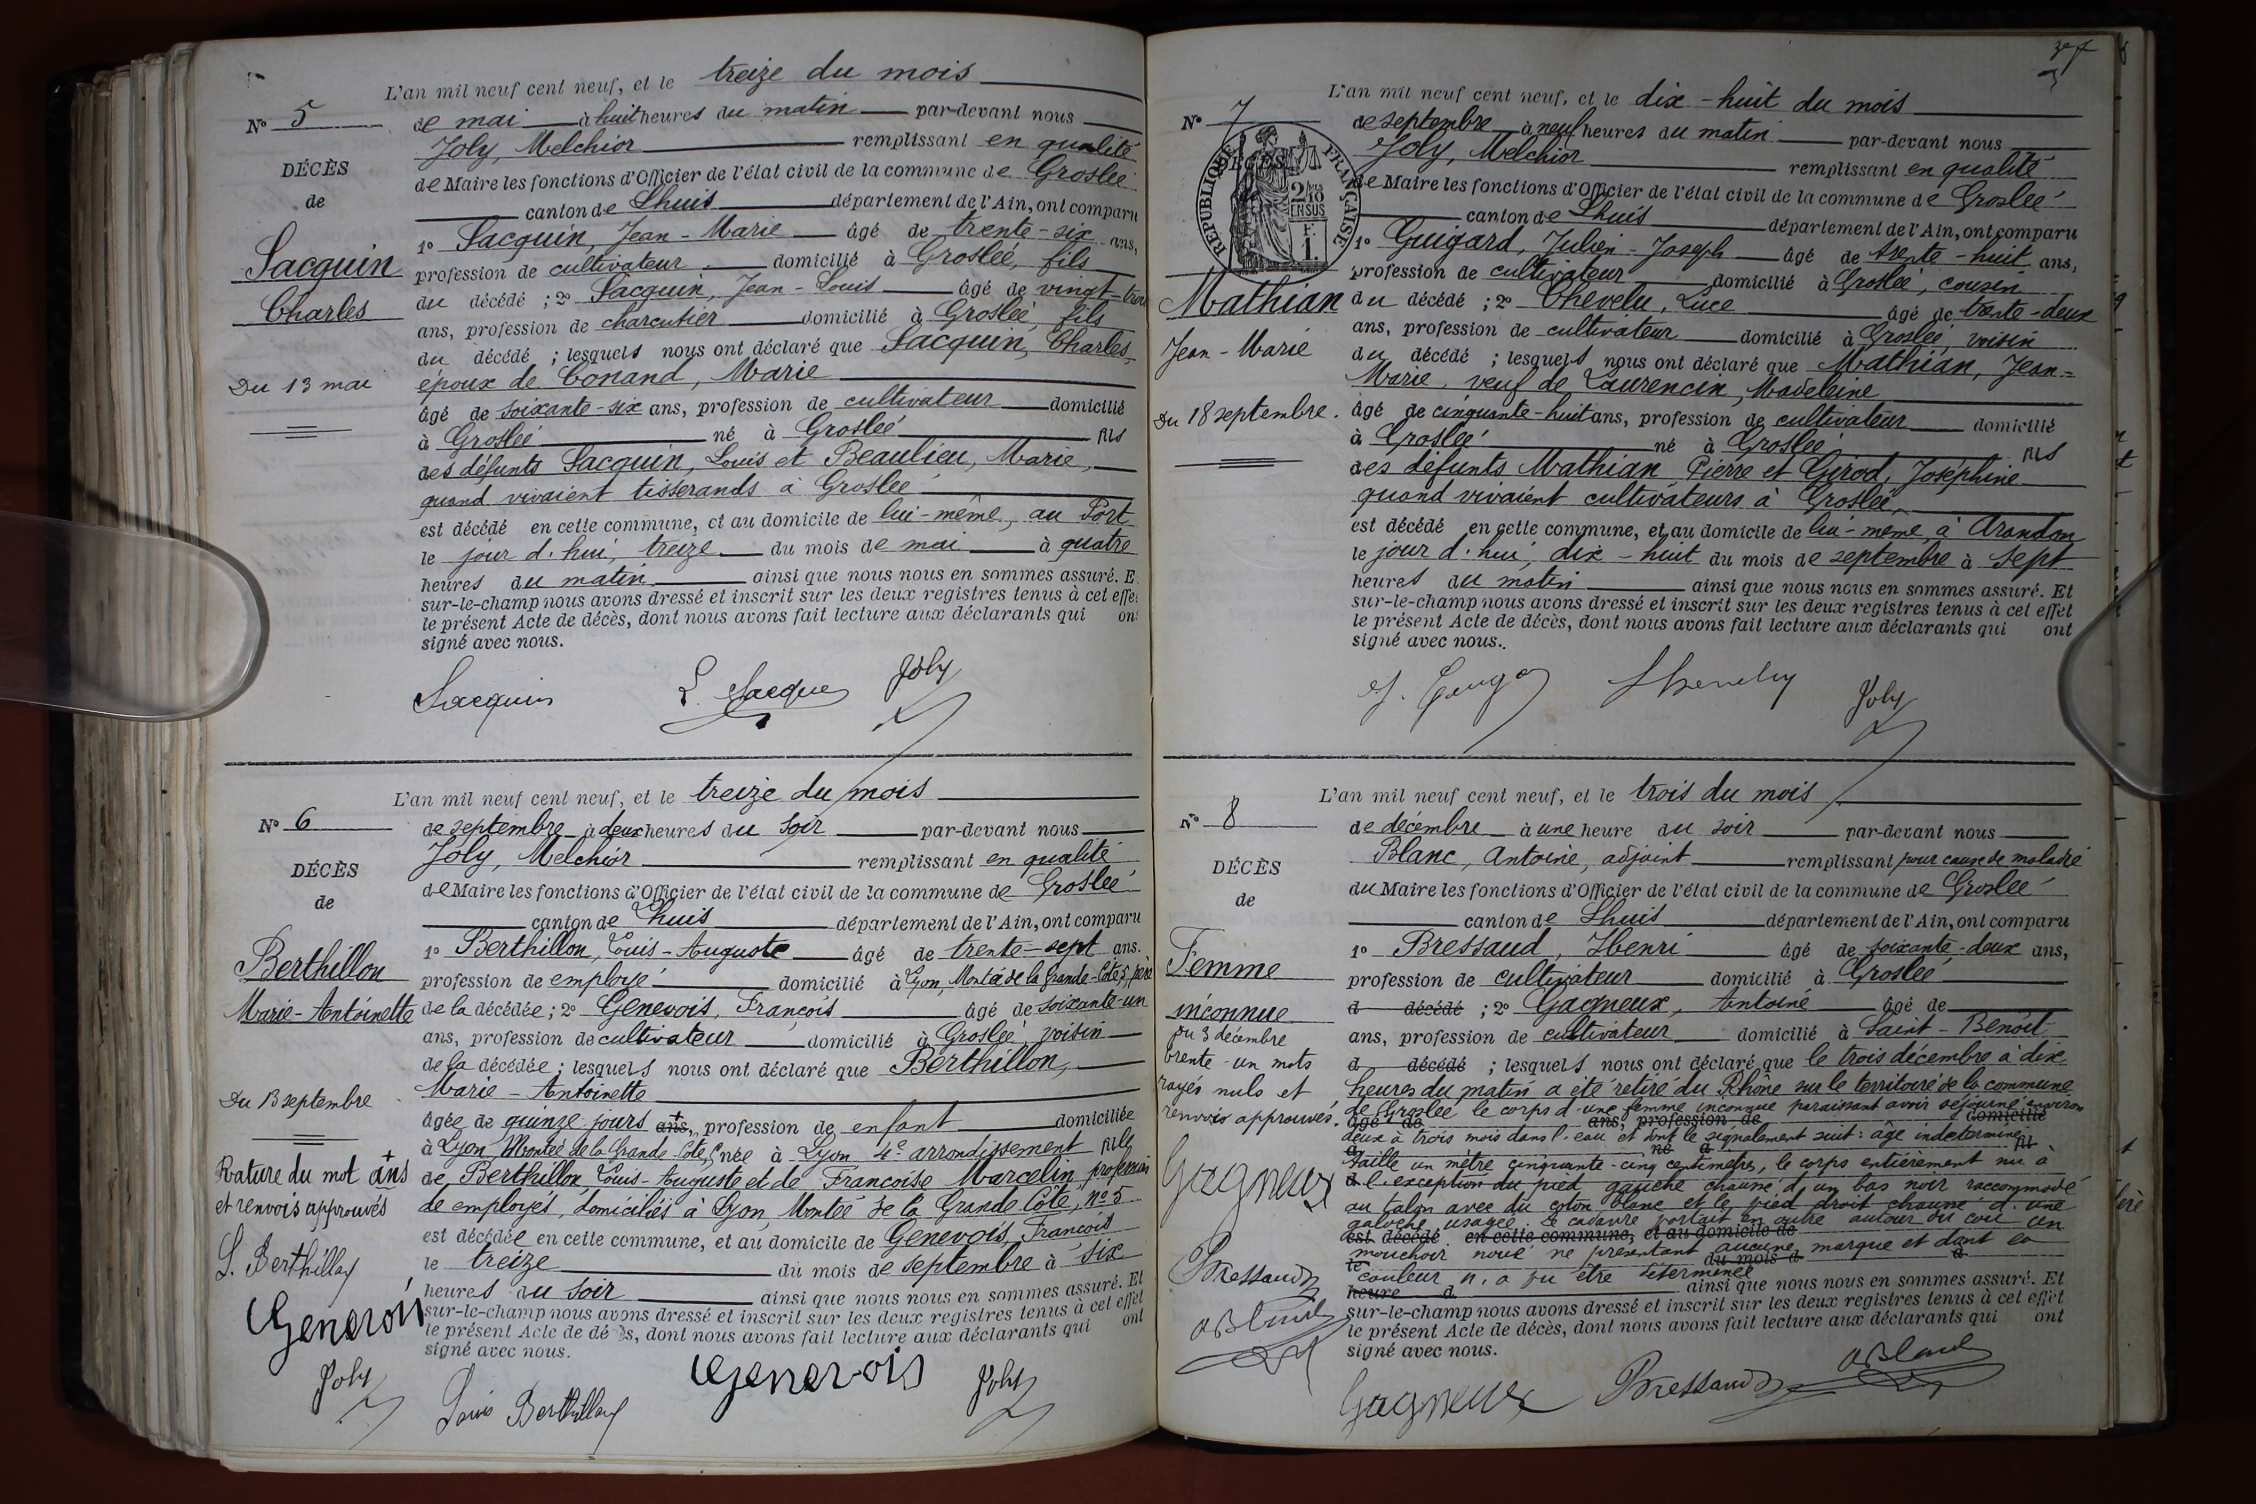 N° 5
DÉCÈS
de
Sacquin
Charles
Du 13 mai
L'an mil neuf cent neuf, et le treize du mois
de mai à huit heures du matin par-devant nous
Joly, Melchior remplissant en qualité
de Maire les fonctions d'Officier de l'état civil de la commune de Groslée
canton de Lhuis département de l'Ain, ont comparu
1° Sacquin, Jean-Marie âgé de trente-six ans,
profession de cultivateur domicilié à Groslée, fils
du décédé ; 2° Sacquin, Jean-Louis âgé de vingt-trois
ans, profession de charcutier domicilié à Groslée, fils
du décédé ; lesquels nous ont déclaré que Sacquin, Charles,
époux de Conand, Marie
âgé de soixante-six ans, profession de cultivateur domicilié
à Groslée né à Groslée fils
des défunts Sacquin, Louis et Beaulieu, Marie,
quand vivaient tisserands à Groslée
est décédé en cette commune, et au domicile de lui-même, au Port
le jour d'hui, treize du mois de mai à quatre
heures du matin ainsi que nous nous en sommes assuré. E
sur-le-champ nous avons dressé et inscrit sur les deux registres tenus à cet effet
le présent Acte de décès, dont nous avons fait lecture aux déclarants qui ont
signé avec nous.
Sacquin L. Sacquin Joly
N° 6
DÉCÈS
de
Berthillon
Marie-Antoinette
Du 13 septembre
Rature du mot ans
et renvois approuvés
L. Berthillon
Genevois
Joly
L'an mil neuf cent neuf, et le treize du mois
de septembre à deux heures du soir par-devant nous
Joly, Melchior remplissant en qualité
de Maire les fonctions d'Officier de l'état civil de la commune de Groslée
canton de Lhuis département de l'Ain, ont comparu
1° Berthillon, Louis-Auguste âgé de trente-sept ans.
profession de employé domicilié à Lyon, Montée de la Grande-Côte, 5, père
de la décédée ; 2° Genevois, François âgé de soixante-un
ans, profession de cultivateur domicilié à Groslée, voisin
de la décédée ; lesquels nous ont déclaré que Berthillon,
Marie-Antoinette
âgée de quinze jours ans, profession de enfant domiciliée
à Lyon, Montée de la Grande-Côte, 5, née à Lyon 4e arrondissement fille
de Berthillon Louis-Auguste et de Françoise Marcelin, profession
de employés, domiciliés à Lyon, Montée de la Grande Côte, n° 5
est décédée en cette commune, et au domicile de Genevois, François
le treize du mois de septembre à six
heures du soir ainsi que nous nous en sommes assuré. Et
sur-le-champ nous avons dressé et inscrit sur les deux registres tenus à cet effet
le présent Acte de décès, dont nous avons fait lecture aux déclarants qui ont
signé avec nous.
Louis Berthillon Genevois Joly
N° 7
RÉPUBLIQUE FRANÇAISE
DÉCÈS
2/10
EN SUS
F.
1.
Mathian
Jean-Marie
Du 18 septembre.
L'an mil neuf cent neuf, et le dix-huit du mois
de septembre à neuf heures du matin par-devant nous
Joly, Melchior remplissant en qualité
de Maire les fonctions d'Officier de l'état civil de la commune de Groslée
canton de Lhuis département de l'Ain, ont comparu
1° Guigard, Julien-Joseph âgé de trente-huit ans,
profession de cultivateur domicilié à Groslée, cousin
du décédé ; 2° Chevelu, Luce âgé de trente-deux
ans, profession de cultivateur domicilié à Groslée, voisin
du décédé ; lesquels nous ont déclaré que Mathian, Jean-
Marie, veuf de Laurencin, Madeleine,
âgé de cinquante-huit ans, profession de cultivateur domicilié
à Groslée né à Groslée fils
des défunts Mathian Pierre et Girod, Joséphine
quand vivaient cultivateurs à Groslée,
est décédé en cette commune, et au domicile de lui-même, à Arandon
le jour d'hui, dix-huit du mois de septembre à sept
heures du matin ainsi que nous nous en sommes assuré. Et
sur-le-champ nous avons dressé et inscrit sur les deux registres tenus à cet effet
le présent Acte de décès, dont nous avons fait lecture aux déclarants qui ont
signé avec nous.
Joly
N° 8
DÉCÈS
de
Femme
inconnue
Du 3 décembre
trente-un mots
rayés nuls et
renvois approuvés.
Gagneux
Bressaud
A Blanc
L'an mil neuf cent neuf, et le trois du mois
de décembre à une heure du soir par-devant nous
Blanc, Antoine, adjoint remplissant pour cause de maladie
du Maire les fonctions d'Officier de l'état civil de la commune de Groslée
canton de Lhuis département de l'Ain, ont comparu
1° Bressaud, Henri âgé de soixante-deux ans,
profession de cultivateur domicilié à Groslée
d décédé ; 2° Gagneux, Antoine âgé de
ans, profession de cultivateur domicilié à Saint-Benoît
d décédé ; lesquels nous ont déclaré que le trois décembre à dix
heures du matin a été retiré du Rhône sur le territoire de la commune
de Groslée le corps d'une femme inconnue paraissant avoir séjourné environ
âgé de ans, profession de domicilié
deux à trois mois dans l'eau et dont le signalement suit : âge indéterminé
à né à fil
taille un mètre cinquante-cinq centimètres, le corps entièrement nu à
d l'exception du pied gauche chaussé d'un bas noir raccommodé
au talon avec du coton blanc et le pied droit chaussé d'une
galoche usagée. Le cadavre portait en outre autour du cou un
est décédé en cette commune, et au domicile de
mouchoir noué ne présentant aucune marque et dont la
le du mois d à
couleur n'a pu être déterminée
heure d ainsi que nous nous en sommes assuré. Et
sur-le-champ nous avons dressé et inscrit sur les deux registres tenus à cet effet
le présent Acte de décès, dont nous avons fait lecture aux déclarants qui ont
signé avec nous.
Gagneux Bressaud A Blanc